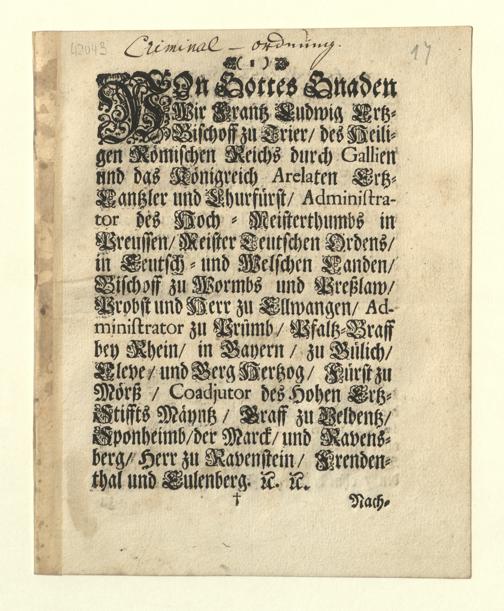 42043 Criminal - ordnung. 17
( 1 )
VOn Gottes Gnaden
Wir Frantz Ludwig Ertz-
Bischoff zu Trier/ des Heili-
gen Römischen Reichs durch Gallien
und das Königreich Arelaten Ertz-
Cantzler und Churfürst/ Administra-
tor des Hoch-Meisterthumbs in
Preussen/ Meister Teutschen Ordens/
in Teutsch- und Welschen Landen/
Bischoff zu Wormbs und Preßlaw/
Probst und Herr zu Ellwangen/ Ad-
ministrator zu Prümb/ Pfaltz-Graff
bey Rhein/ in Bayern/ zu Gülich/
Cleve/ und Berg Hertzog/ Fürst zu
Mörß/ Coadjutor des Hohen Ertz-
Stiffts Mäyntz/ Graff zu Veldentz/
Sponheimb/der Marck/ und Ravens-
berg/ Herr zu Ravenstein/ Frenden-
thal und Eulenberg. ꝛc. ꝛc.
† Nach-